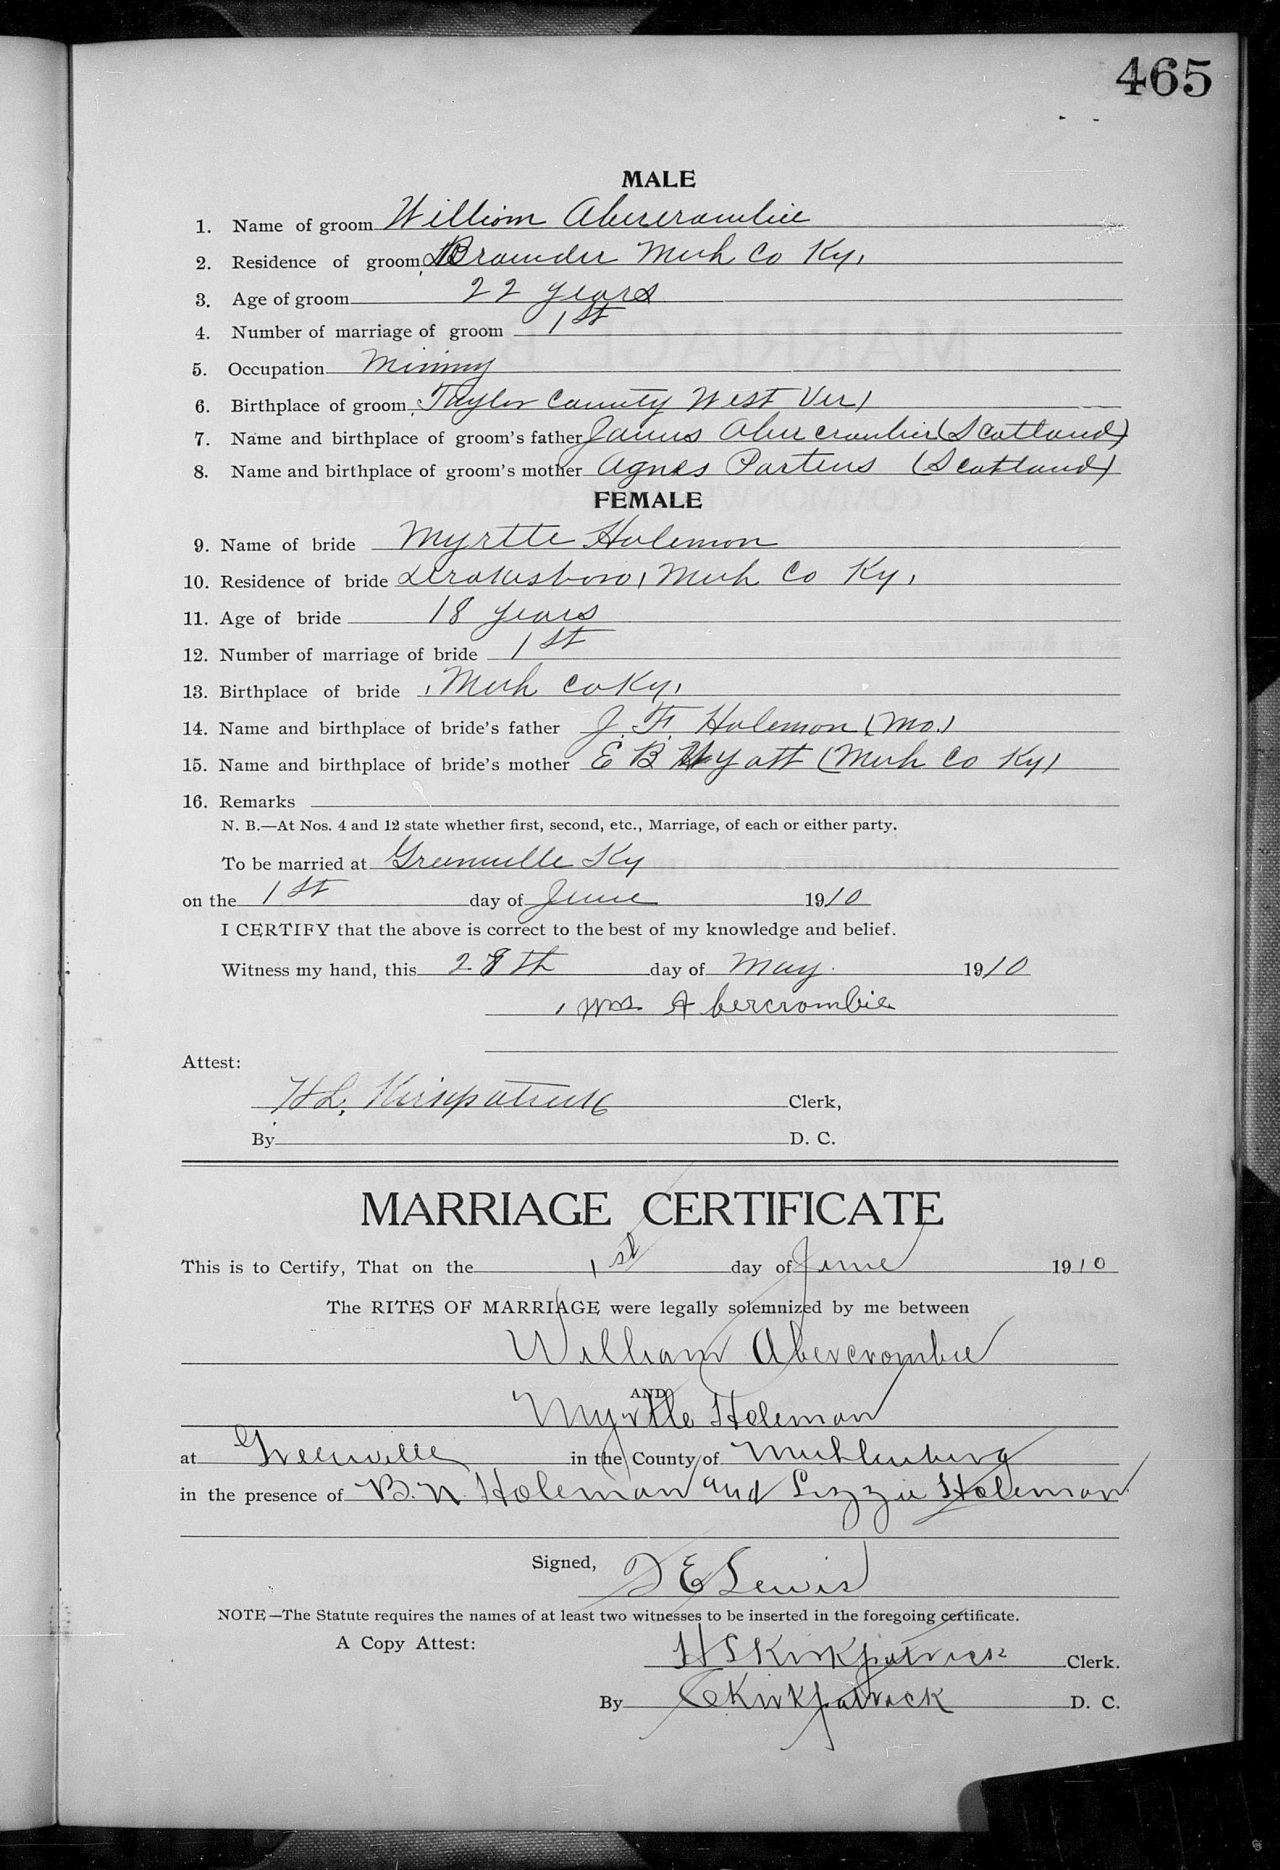 465
MALE
1. Name of groom William Abercrombie
2. Residence of groom Browder Muh Co Ky,
3. Age of groom 22 years
4. Number of marriage of groom 1st
5. Occupation Mining
6. Birthplace of groom Taylor County West Vir,
7. Name and birthplace of groom's father James Abercrombie (Scotland)
8. Name and birthplace of groom's mother Agnes (Scotland)
FEMALE
9. Name of bride Myrtte Holemon
10. Residence of bride Drakesboro, Muh Co Ky,
11. Age of bride 18 years
12. Number of marriage of bride 1st
13. Birthplace of bride Muh Co Ky,
14. Name and birthplace of bride's father J. F. Holemon (Mo.)
15. Name and birthplace of bride's mother E B Wyatt (Muh Co Ky)
16. Remarks
N. B.—At Nos. 4 and 12 state whether first, second, etc., Marriage, of each or either party.
To be married at Greenville Ky
on the 1st day of June 1910
I CERTIFY that the above is correct to the best of my knowledge and belief.
Witness my hand, this 28th day of May 1910
Wm Abercrombie
Attest:
H L. Kirkpatrick Clerk,
By D. C.
MARRIAGE CERTIFICATE
This is to Certify, That on the 1st day of June 1910
The RITES OF MARRIAGE were legally solemnized by me between
William Abercrombie
AND
Myrtle Holeman
at Greenville in the County of Muhlenberg
in the presence of B. N. Holeman and Lizzie Holeman
Signed, D E Lewis
NOTE—The Statute requires the names of at least two witnesses to be inserted in the foregoing certificate.
A Copy Attest: H L Kirkpatrick Clerk.
By C Kirkpatrick D. C.